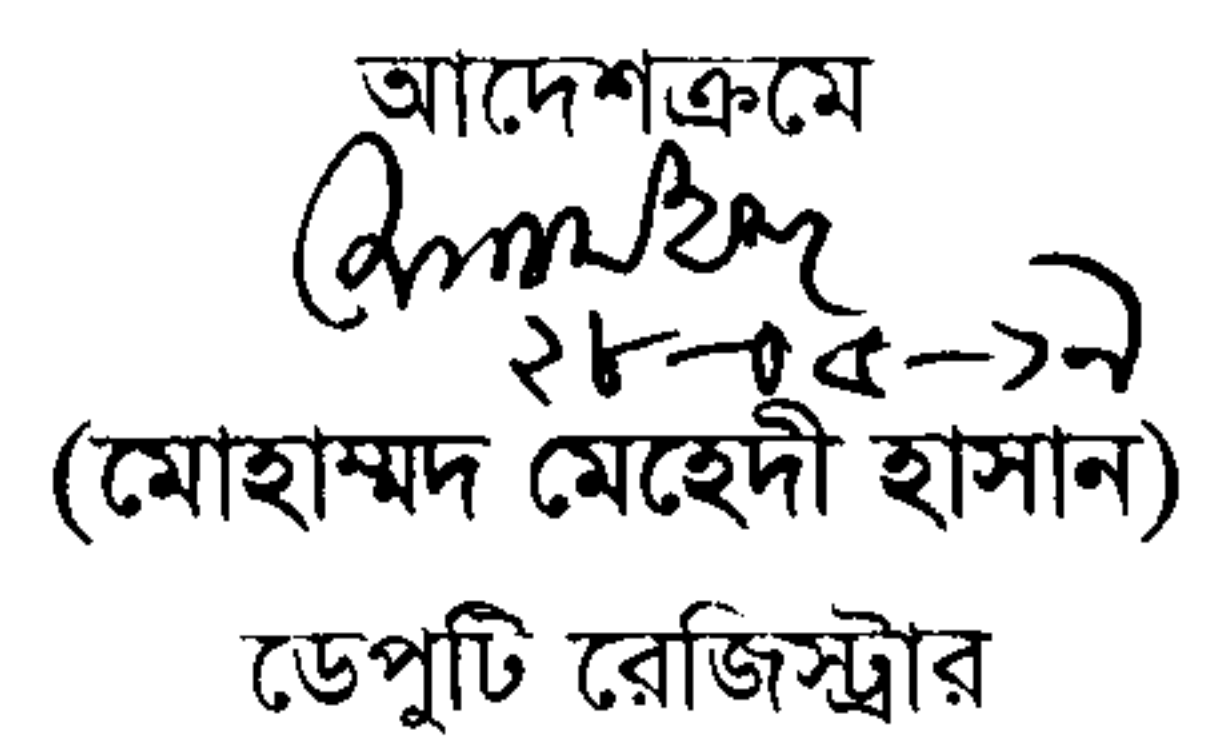 আদেশক্রমে
(মোহাম্মদ মেহেদী হাসান)
ডেপুটি রেজিস্ট্রার